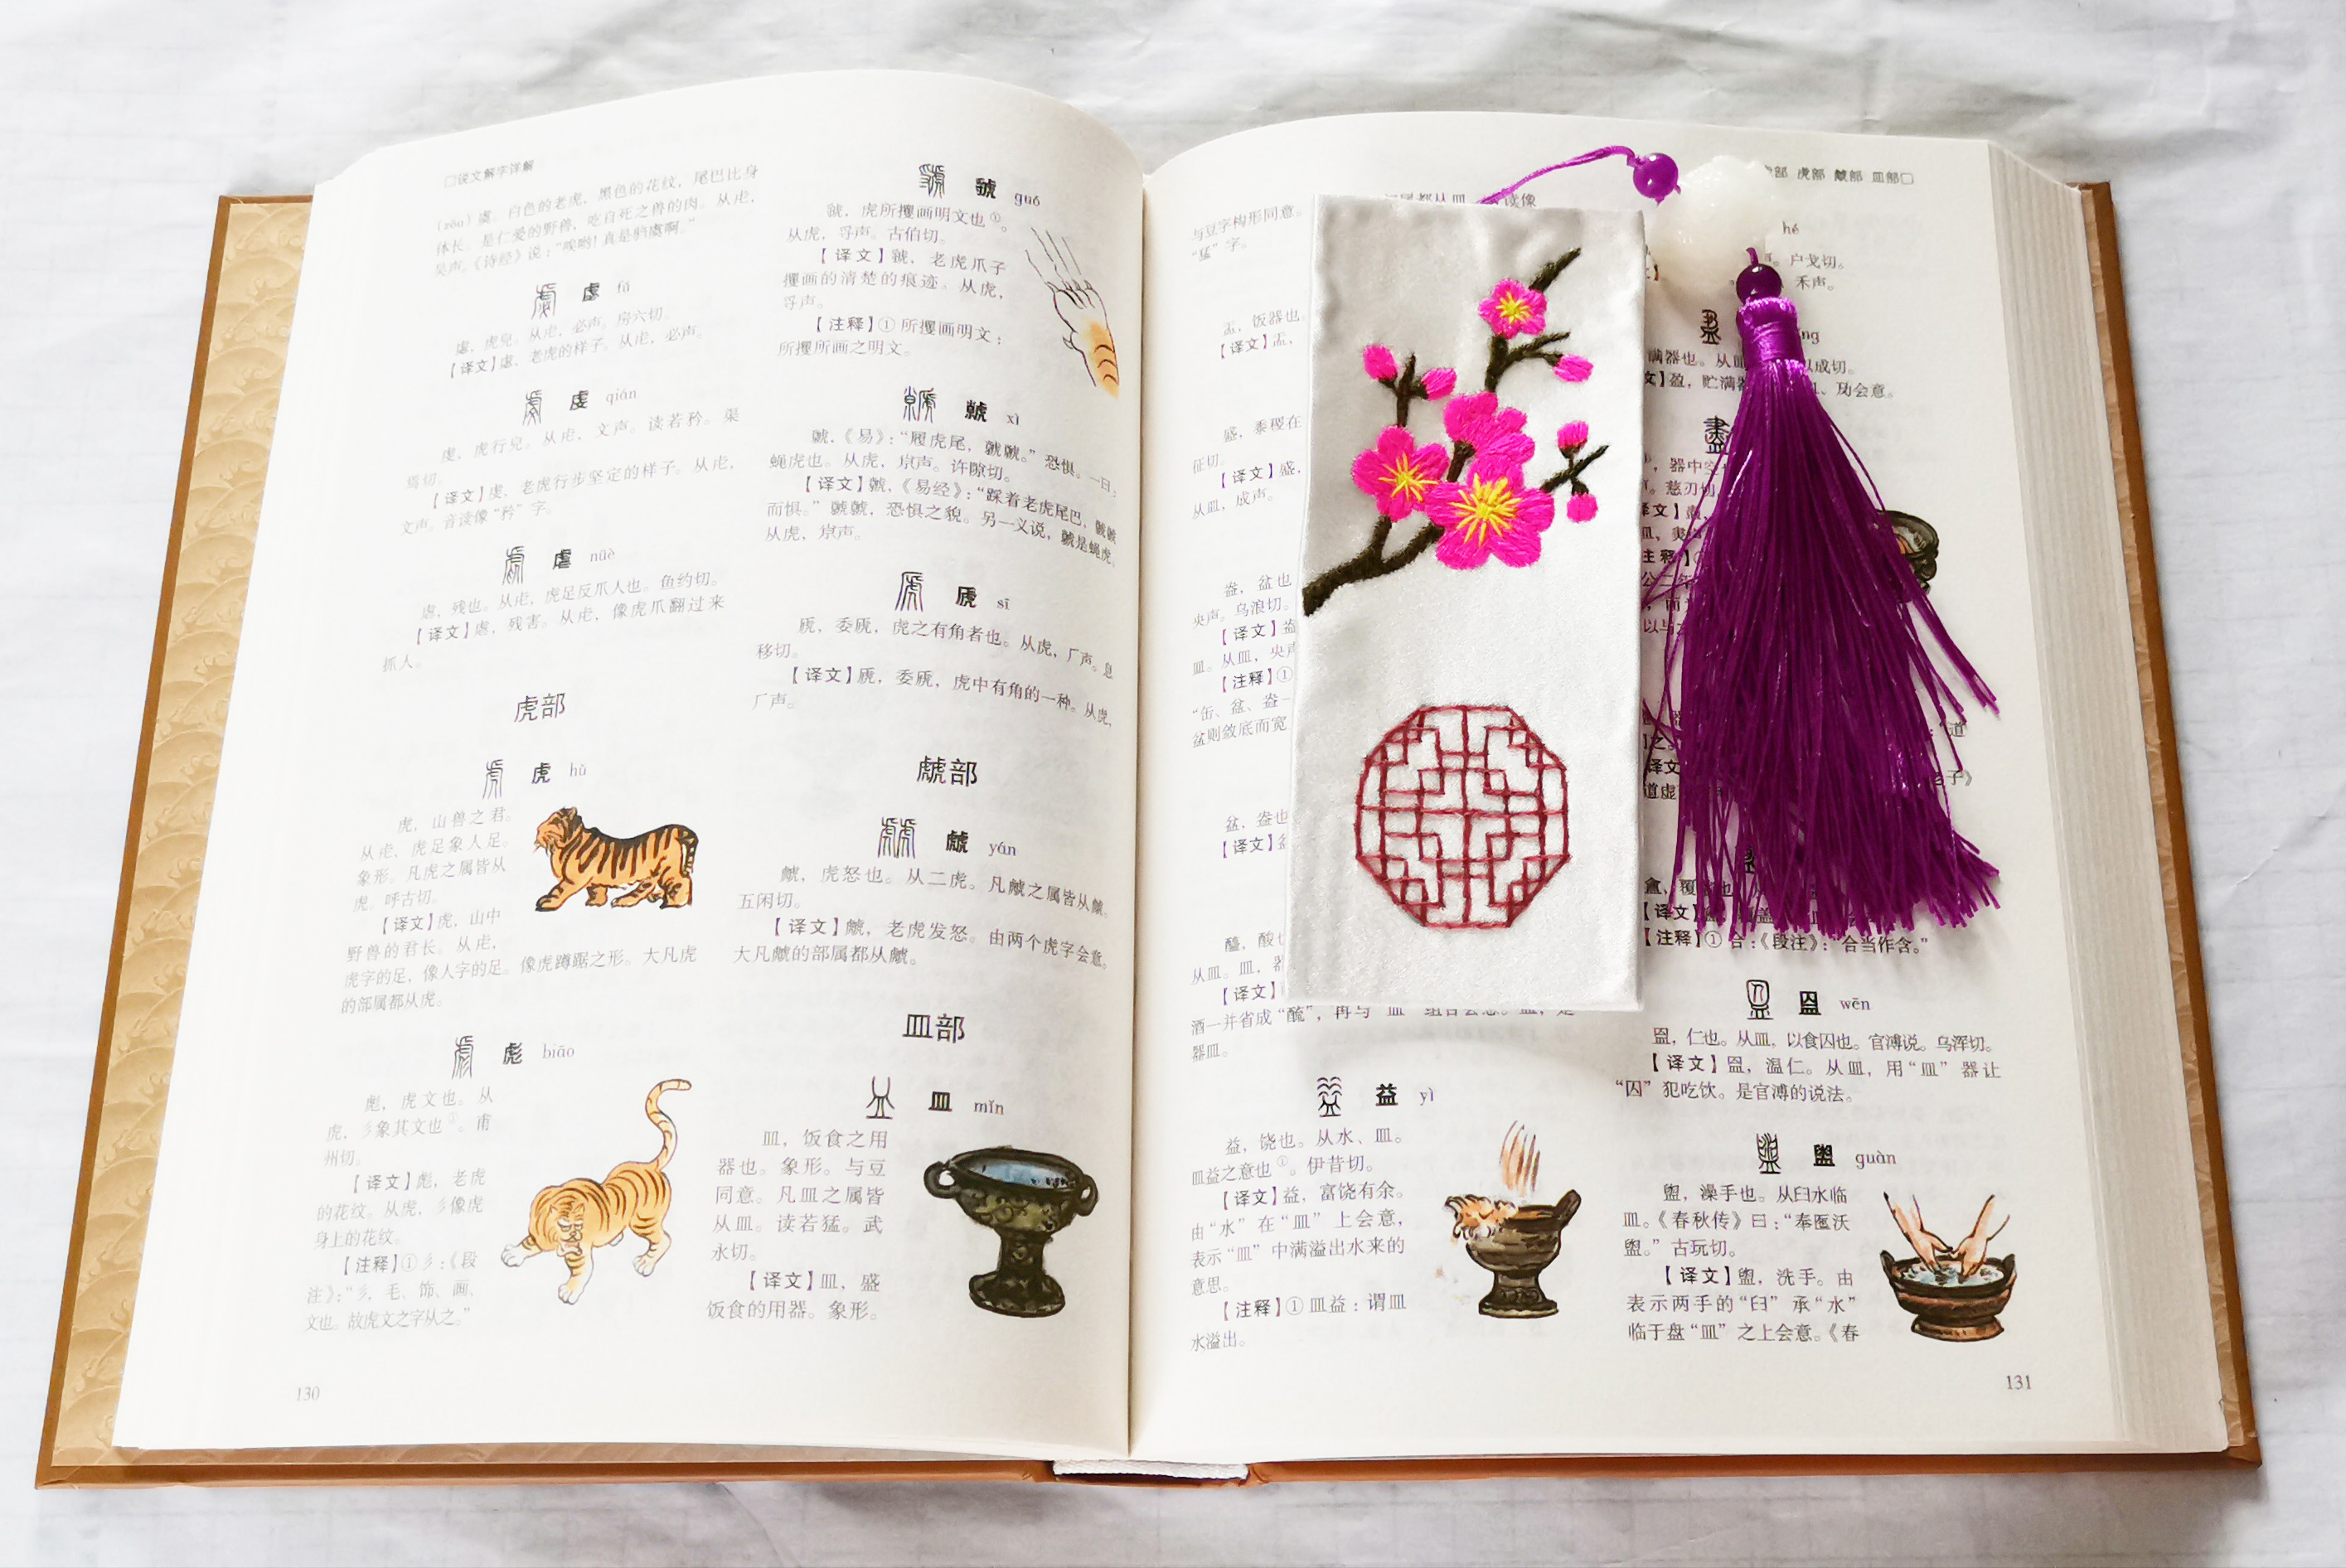 □说文解字详解
(zōu)虞。白色的老虎，黑色的花纹，尾巴比身
体长。是仁爱的野兽，吃自死之兽的肉。从虍，
吴声。《诗经》说：“唉哟！真是驺虞啊。”
虙 fú
虙，虎皃。从虍，必声。房六切。
【译文】虙，老虎的样子。从虍，必声。
虔 qián
虔，虎行皃。从虍，文声。读若矜。渠
焉切。
【译文】虔，老虎行步坚定的样子。从虍，
文声。音读像“矜”字。
虐 nüè
虐，残也。从虍，虎足反爪人也。鱼约切。
【译文】虐，残害。从虍，像虎爪翻过来
抓人。
虎部
虎 hǔ
虎，山兽之君。
从虍，虎足象人足。
象形。凡虎之属皆从
虎。呼古切。
【译文】虎，山中
野兽的君长。从虍，
虎字的足，像人字的足。像虎蹲踞之形。大凡虎
的部属都从虎。
彪 biāo
彪，虎文也。从
虎，彡象其文也①。甫
州切。
【译文】彪，老虎
的花纹。从虎，彡像虎
身上的花纹。
【注释】①彡：《段
注》：“彡，毛、饰、画、
文也。故虎文之字从之。”
130
虢 guó
虢，虎所攫画明文也①。
从虎，寽声。古伯切。
【译文】虢，老虎爪子
攫画的清楚的痕迹。从虎，
寽声。
【注释】①所攫画明文：
所攫所画之明文。
虩 xì
虩，《易》：“履虎尾，虩虩。”恐惧。一曰：
蝇虎也。从虎，𡭴声。许隙切。
【译文】虩，《易经》：“踩着老虎尾巴，虩虩
而惧。”虩虩，恐惧之貌。另一义说，虩是蝇虎。
从虎，𡭴声。
虒 sī
虒，委虒，虎之有角者也。从虎，厂声。息
移切。
【译文】虒，委虒，虎中有角的一种。从虎，
厂声。
虤部
虤 yán
虤，虎怒也。从二虎。凡虤之属皆从虤。
五闲切。
【译文】虤，老虎发怒。由两个虎字会意。
大凡虤的部属都从虤。
皿部
皿 mǐn
皿，饭食之用
器也。象形。与豆
同意。凡皿之属皆
从皿。读若猛。武
永切。
【译文】皿，盛
饭食的用器。象形。
部 虎部 虤部 皿部□
与豆字构形同意。
“猛”字。
盂，饭器也
【译文】盂，
盛，黍稷在
征切。
【译文】盛，
从皿，成声。
盎，盆也
央声。乌浪切。
【译文】盎
皿。从皿，央声
【注释】①
“缶、盆、盎一
盆则敛底而宽
盆，盎也
【译文】盆
醯，酸也
从皿。皿，器
【译文】
酒一并省成“酼”，再与“皿”组合会意。皿，是
器皿。
益 yì
益，饶也。从水、皿。
皿益之意也①。伊昔切。
【译文】益，富饶有余。
由“水”在“皿”上会意，
表示“皿”中满溢出水来的
意思。
【注释】①皿益：谓皿
水溢出。
hé
户戈切。
禾声。
满器也。从皿
以成切。
盈，贮满器
、夃会意。
，器中空
慈刃切
覆
【注释】①合：《段注》：“合当作含。”
昷 wēn
昷，仁也。从皿，以食囚也。官溥说。乌浑切。
【译文】昷，温仁。从皿，用“皿”器让
“囚”犯吃饮。是官溥的说法。
盥 guàn
盥，澡手也。从臼水临
皿。《春秋传》曰：“奉匜沃
盥。”古玩切。
【译文】盥，洗手。由
表示两手的“臼”承“水”
临于盘“皿”之上会意。《春
131